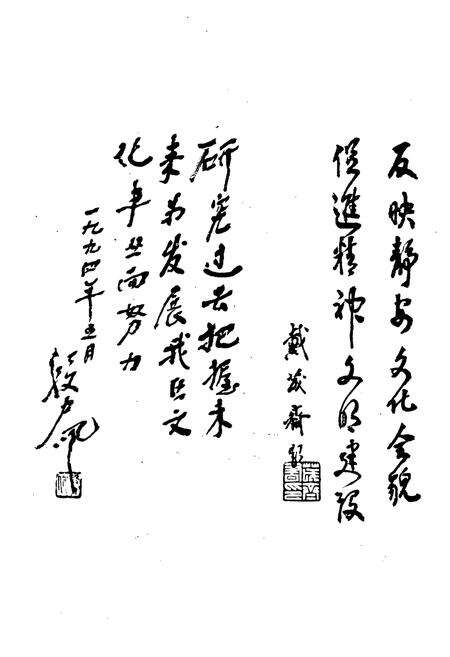 反映静安文化全貌
促進精神文明建设
戴
研究过去把握未
来为发展我区文
化事业而努力
一九九四年五月